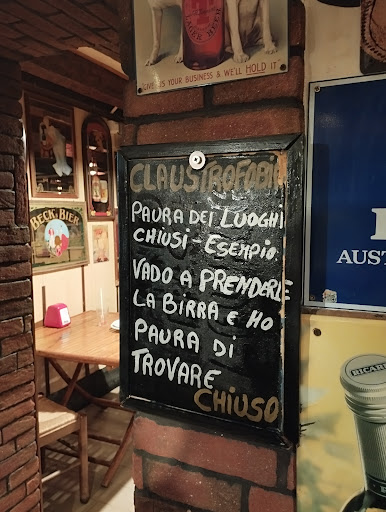 LAGER BEER
GIVE US YOUR BUSINESS & WE'LL HOLD IT
CLAUSTROFOBIA
PAURA DEI LUOGHI
CHIUSI - ESEMPIO
VADO A PRENDERE
LA BIRRA E HO
PAURA DI
TROVARE
CHIUSO
BECK'S BIER
AUST
RICAR